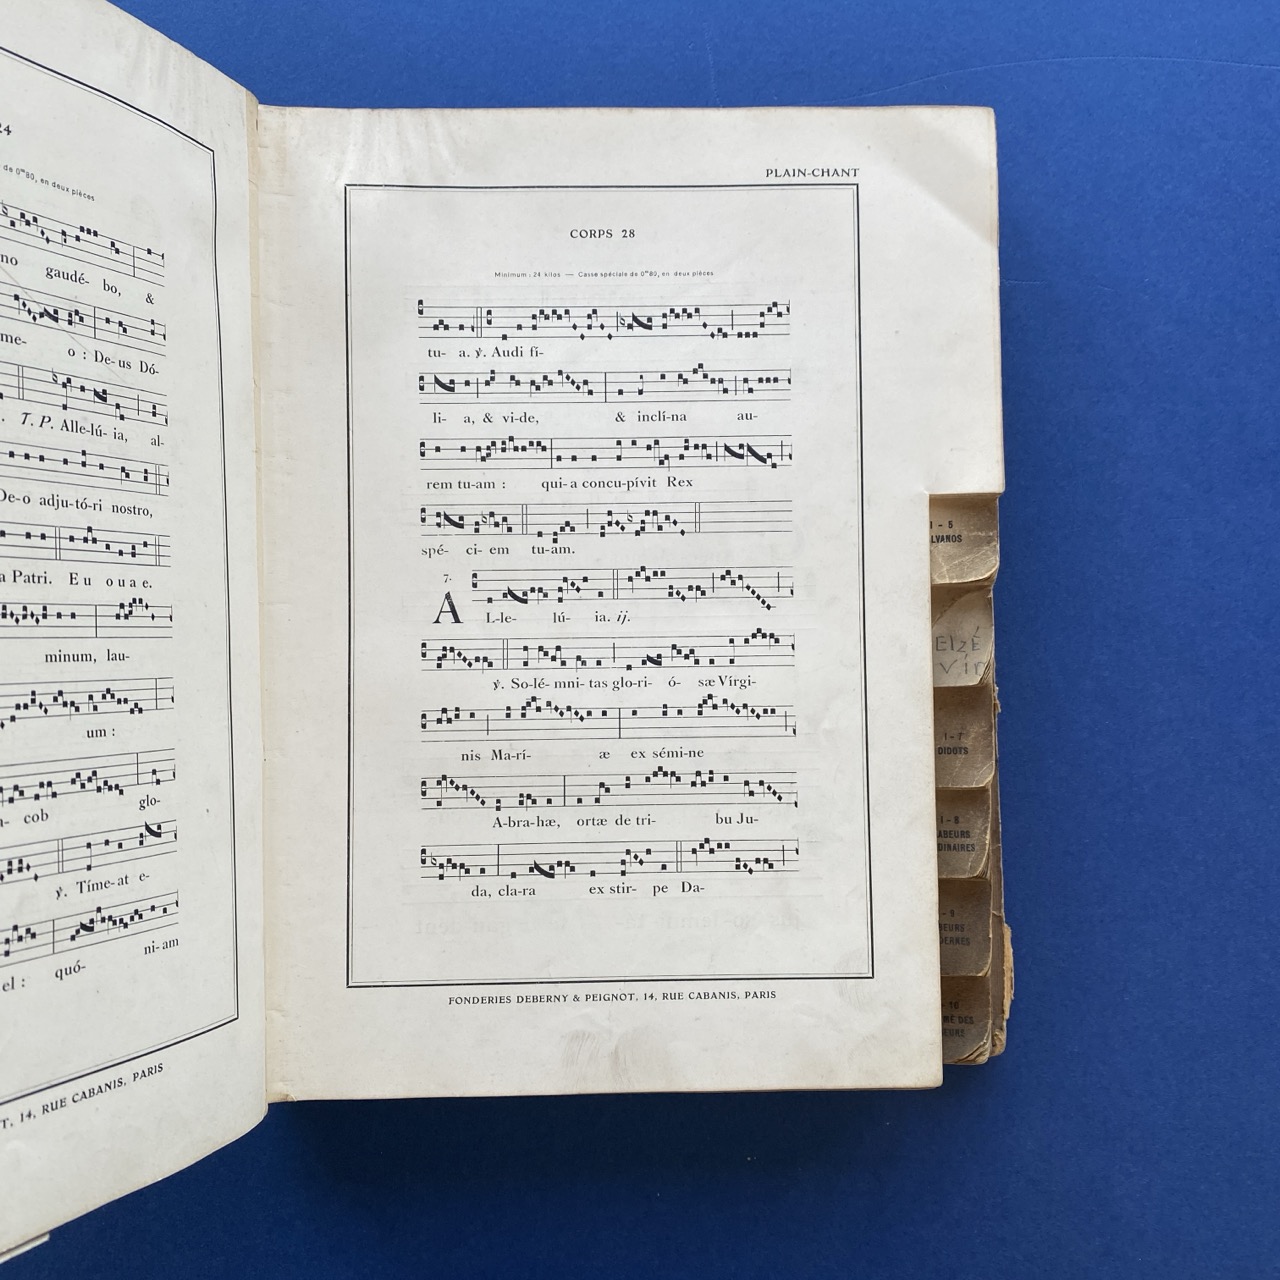 24
de 0ᵐ80, en deux pièces
no gaudé- bo, &
me- o : De-us Dó-
T. P. Alle-lú- ia, al-
De-o adju-tó-ri nostro,
a Patri. E u o u a e.
minum, lau-
um :
cob glo-
℣. Tíme-at e-
el : quó- ni-am
14, RUE CABANIS, PARIS
PLAIN-CHANT
CORPS 28
Minimum : 24 kilos — Casse spéciale de 0ᵐ80, en deux pièces
tu- a. ℣. Audi fí-
li- a, & vi-de, & inclí-na au-
rem tu-am : qui-a concu-pívit Rex
spé- ci- em tu-am.
7.
A L-le- lú- ia. ij.
℣. So-lé- mni- tas glo-ri- ó- sæ Vírgi-
nis Ma-rí- æ ex sémi-ne
A-bra-hæ, ortæ de tri- bu Ju-
da, cla-ra ex stir- pe Da-
FONDERIES DEBERNY & PEIGNOT, 14, RUE CABANIS, PARIS
I - 5
LVANOS
ELZÉ
VIR
I - 7
DIDOTS
I - 8
ABEURS
DINAIRES
- 9
BEURS
DERNES
- 10
DES